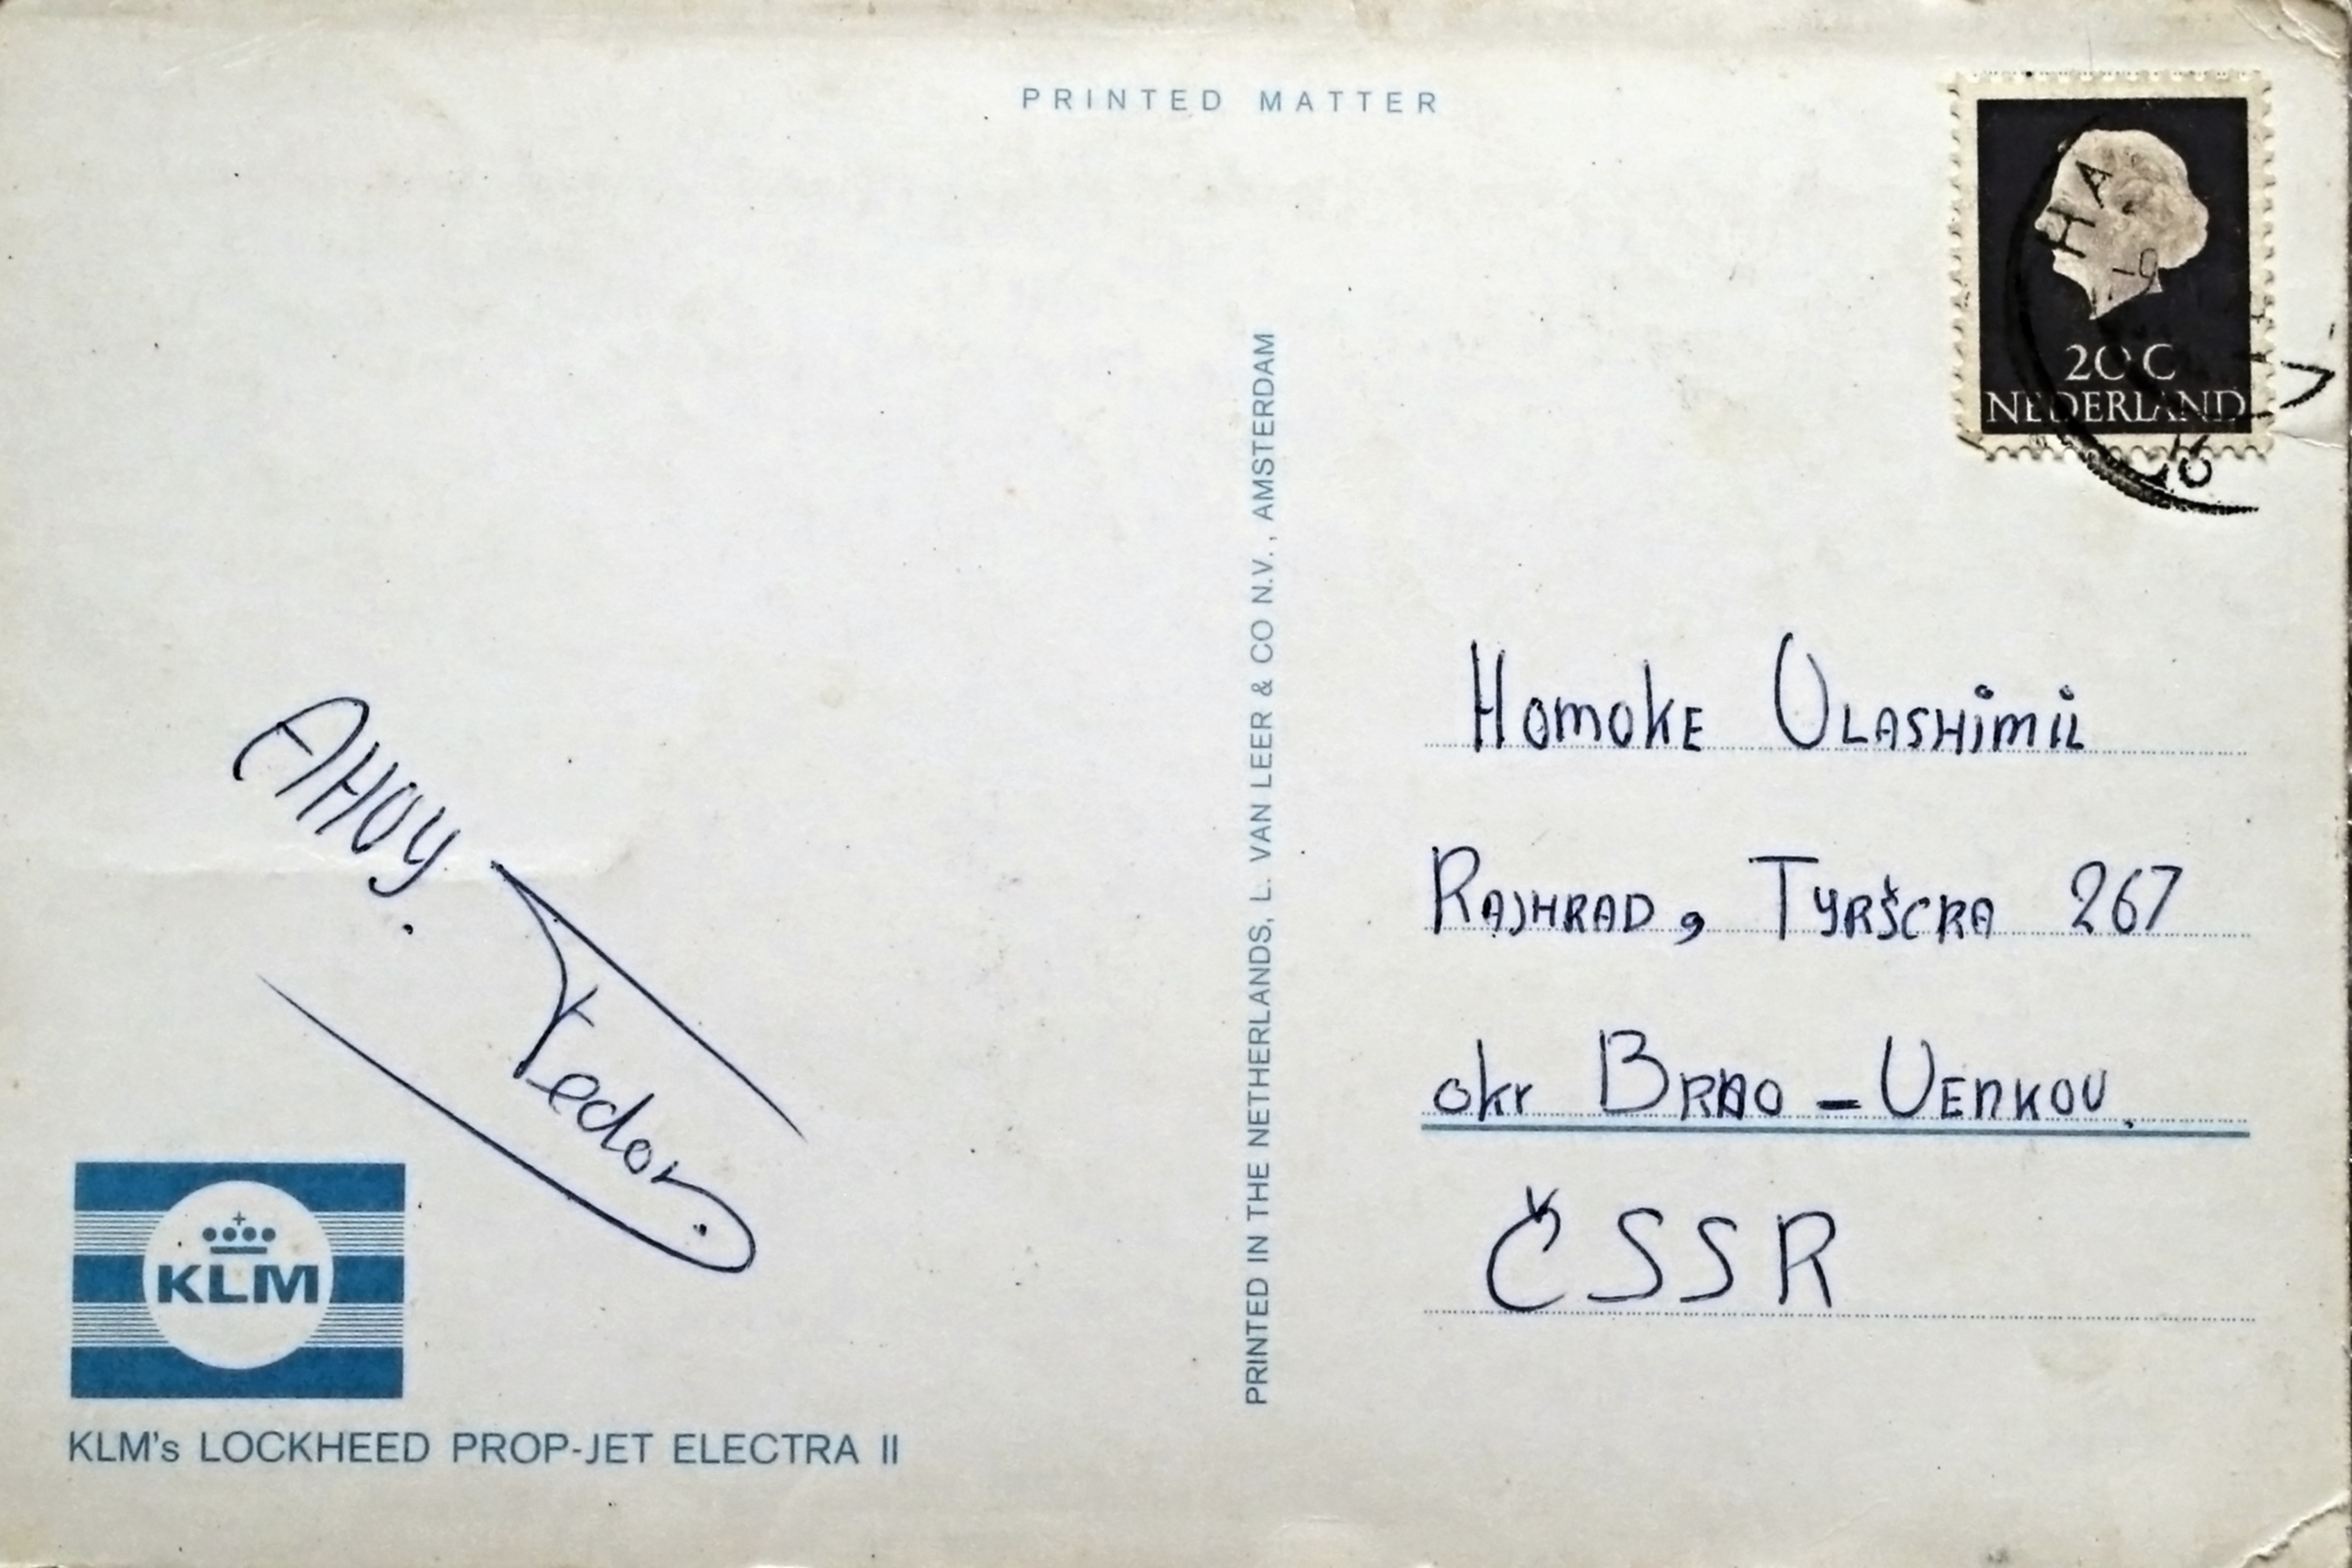 PRINTED MATTER
20 C
NEDERLAND
HA
AHOY.
Tedor
Homoke Vlashimil
Rajhrad, Tyršcra 267
okr Brno - Venkov.
ČSSR
PRINTED IN THE NETHERLANDS, L. VAN LEER & CO N.V., AMSTERDAM
KLM
KLM's LOCKHEED PROP-JET ELECTRA II